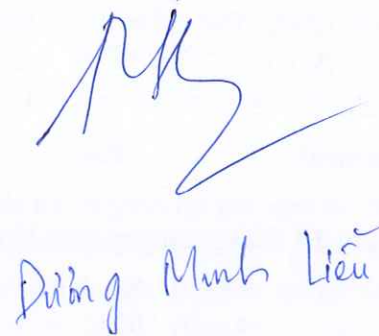 Dương Minh Liễu